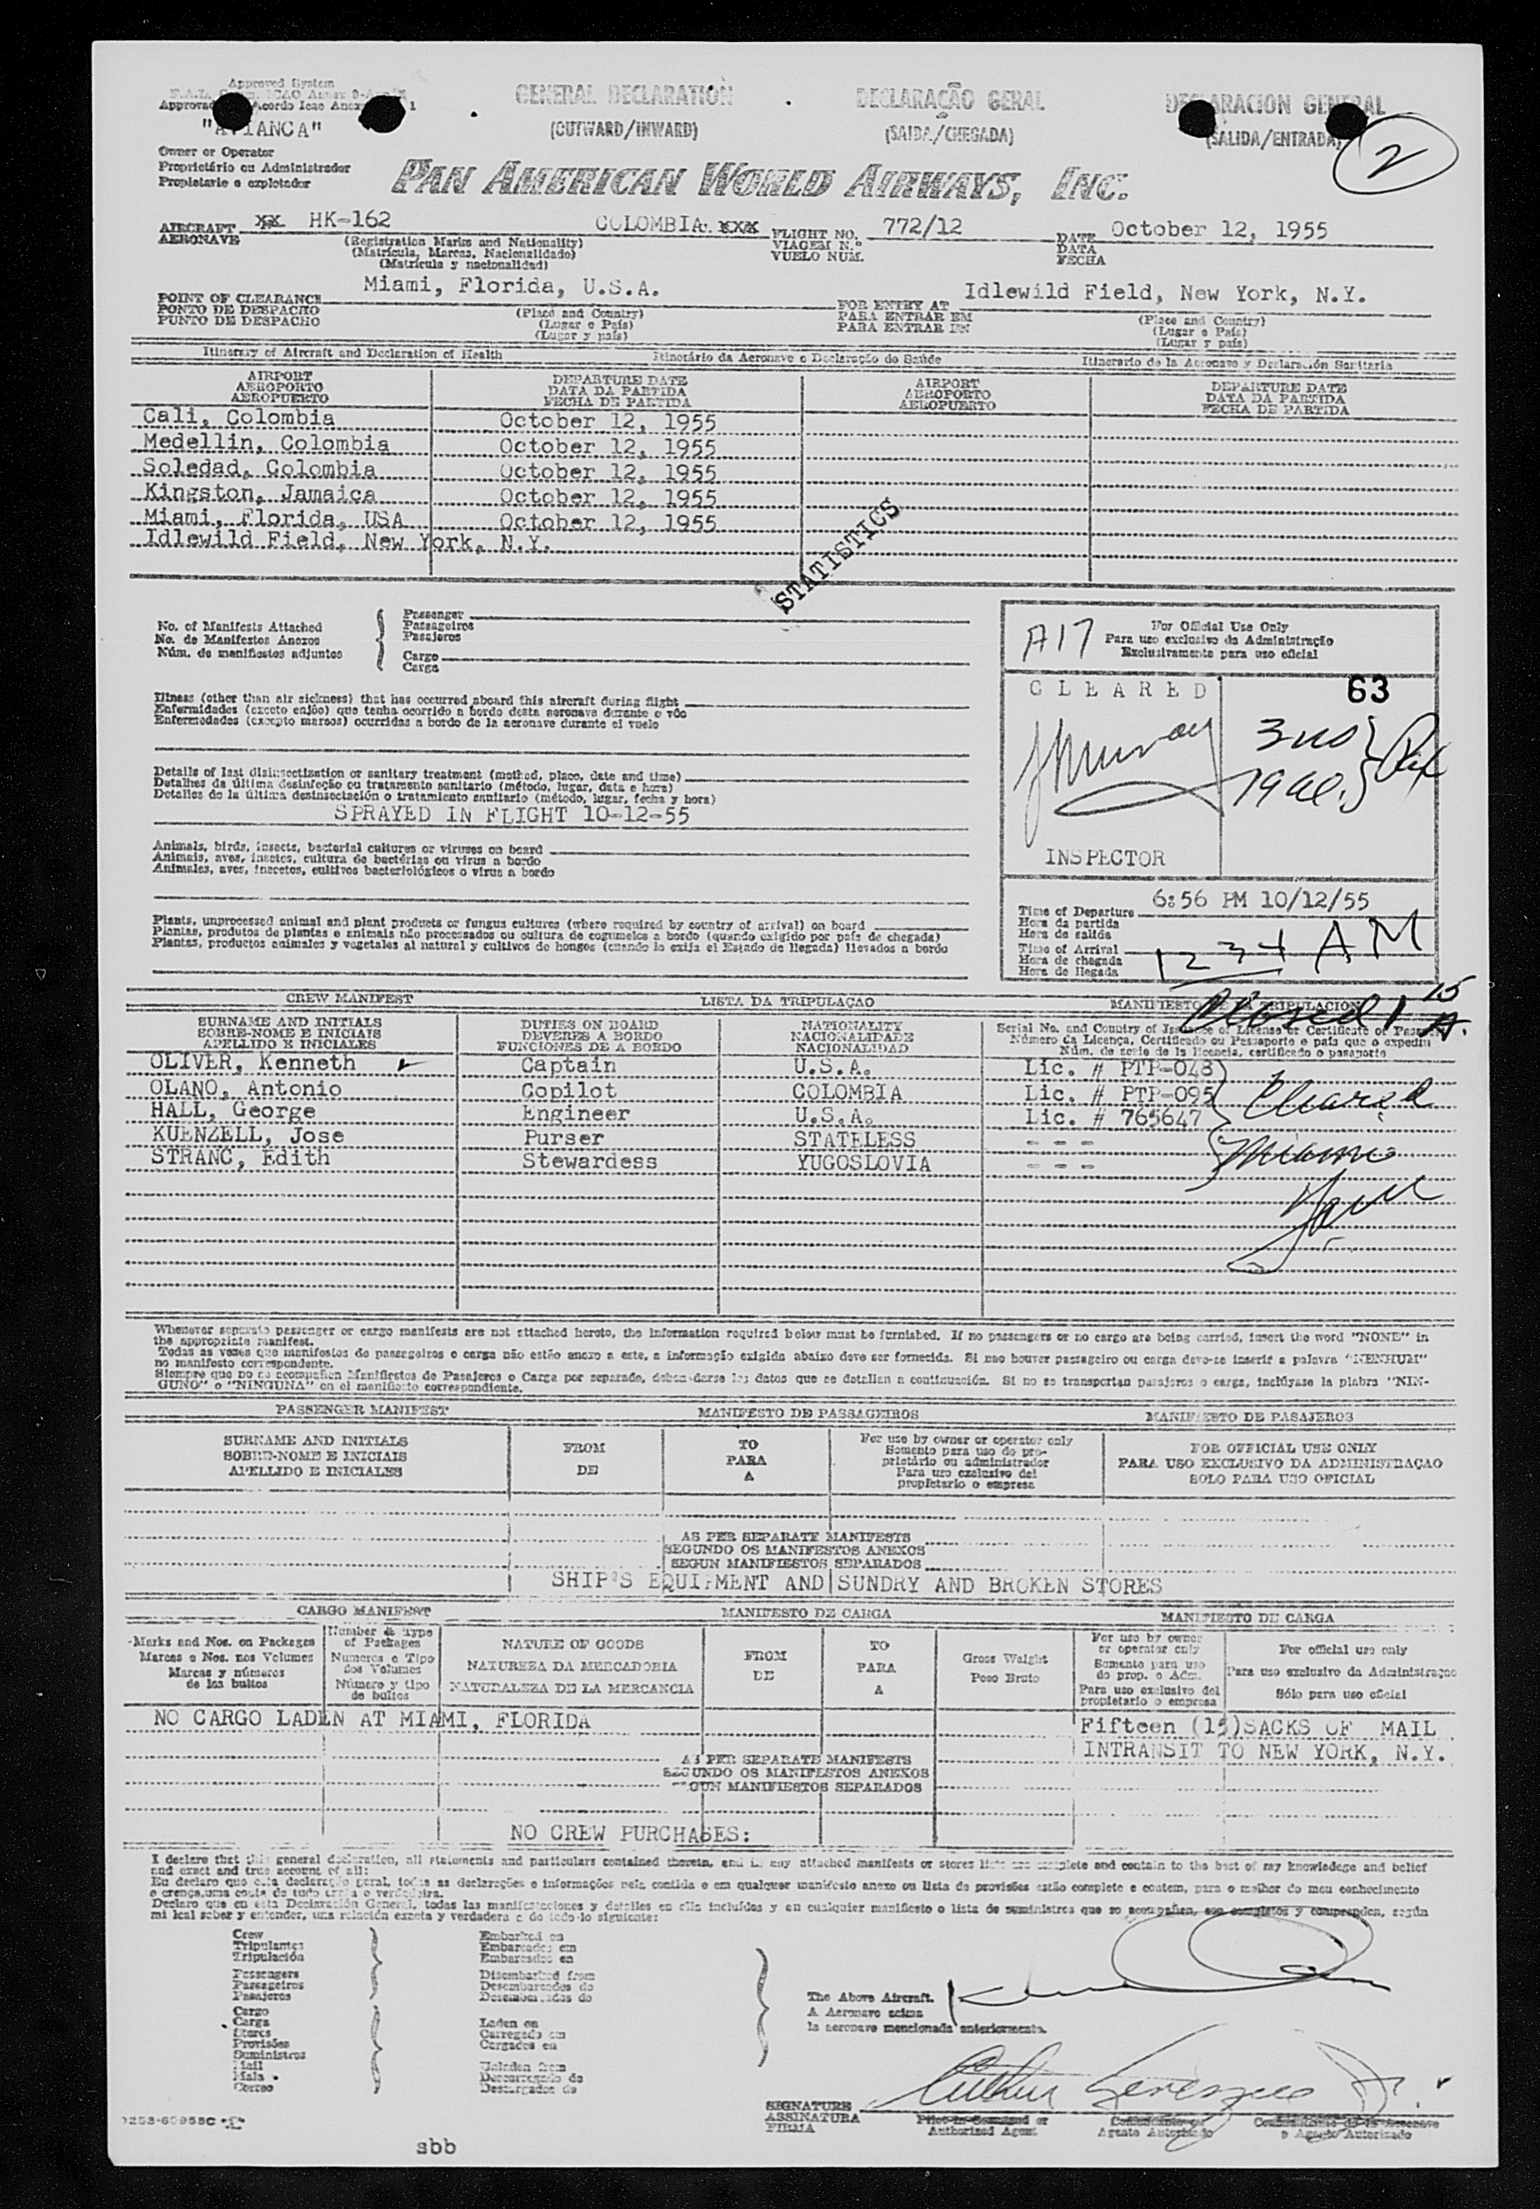 Approved System
"AVIANCA"
GENERAL DECLARATION
(OUTWARD/INWARD)
DECLARAÇÃO GERAL
(SAIDA/CHEGADA)
DECLARACION GENERAL
(SALIDA/ENTRADA)
2
Owner or Operator
Proprietário ou Administrador
Propietario o explotador
PAN AMERICAN WORLD AIRWAYS, INC.
AIRCRAFT xx HK-162 COLOMBIA. xxx FLIGHT NO. 772/12 DATE October 12, 1955
AERONAVE (Registration Marks and Nationality) VIAGEM N.º DATA
(Matrícula, Marcas, Nacionalidade) VUELO NUM. FECHA
(Matrícula y nacionalidad)
POINT OF CLEARANCE Miami, Florida, U.S.A. FOR ENTRY AT Idlewild Field, New York, N.Y.
PONTO DE DESPACHO (Place and Country) PARA ENTRAR EM (Place and Country)
PUNTO DE DESPACHO (Lugar e País) PARA ENTRAR EN (Lugar e País)
(Lugar y país) (Lugar y país)
Itinerary of Aircraft and Declaration of Health Itinerário da Aeronave e Declaração de Saúde Itinerario de la Aeronave y Declaración Sanitaria
AIRPORT DEPARTURE DATE AIRPORT DEPARTURE DATE
AEROPORTO DATA DA PARTIDA AEROPORTO DATA DA PARTIDA
AEROPUERTO FECHA DE PARTIDA AEROPUERTO FECHA DE PARTIDA
Cali, Colombia October 12, 1955
Medellin, Colombia October 12, 1955
Soledad, Colombia October 12, 1955
Kingston, Jamaica October 12, 1955
Miami, Florida, USA October 12, 1955
Idlewild Field, New York, N.Y.
STATISTICS
No. of Manifests Attached
No. de Manifestos Anexos
Núm. de manifiestos adjuntos
Passenger
Passageiros
Pasajeros
Cargo
Carga
A17
For Official Use Only
Para uso exclusivo da Administração
Exclusivamente para uso oficial
CLEARED
63
INSPECTOR
Illness (other than air sickness) that has occurred aboard this aircraft during flight
Enfermidades (exceto enjôo) que tenha ocorrido a bordo desta aeronave durante o vôo
Enfermedades (excepto mareos) ocurridas a bordo de la aeronave durante el vuelo
Details of last disinsectization or sanitary treatment (method, place, date and time)
Detalhes da última desinfeção ou tratamento sanitario (método, lugar, data e hora)
Detalles de la última desinsectación o tratamiento sanitario (método, lugar, fecha y hora)
SPRAYED IN FLIGHT 10-12-55
Animals, birds, insects, bacterial cultures or viruses on board
Animais, aves, insetos, cultura de bactérias ou virus a bordo
Animales, aves, insectos, cultivos bacteriológicos o virus a bordo
Plants, unprocessed animal and plant products or fungus cultures (where required by country of arrival) on board
Plantas, produtos de plantas e animais não processados ou cultura de cogumelos a bordo (quando exigido por país de chegada)
Plantas, productos animales y vegetales al natural y cultivos de hongos (cuando lo exija el Estado de llegada) llevados a bordo
6:56 PM 10/12/55
Time of Departure
Hora da partida
Hora de salida
Time of Arrival 1234 AM
Hora de chegada
Hora de llegada
CREW MANIFEST LISTA DA TRIPULAÇAO MANIFIESTO DE LA TRIPULACION
SURNAME AND INITIALS DUTIES ON BOARD NATIONALITY Serial No. and Country of Issuance of License or Certificate or Passport
SOBRE-NOME E INICIAIS DEVERES A BORDO NACIONALIDADE Número da Licença, Certificado ou Passaporte e país que o expediu
APELLIDO E INICIALES FUNCIONES DE A BORDO NACIONALIDAD Núm. de serie de la licencia, certificado o pasaporte
OLIVER, Kenneth Captain U.S.A. Lic. # PTP-048
OLANO, Antonio Copilot COLOMBIA Lic. # PTP-095
HALL, George Engineer U.S.A. Lic. # 765647
KUENZELL, Jose Purser STATELESS - - -
STRANC, Edith Stewardess YUGOSLOVIA - - -
Cleared
Miami
Whenever separate passenger or cargo manifests are not attached hereto, the information required below must be furnished. If no passengers or no cargo are being carried, insert the word "NONE" in
the appropriate manifest.
Todas as vezes que manifestos de passageiros e carga não estão anexo a este, a informação exigida abaixo deve ser fornecida. Si nao houver passageiro ou carga deve-se inserir a palavra "NENHUM"
no manifesto correspondente.
Siempre que no se acompañen Manifiestos de Pasajeros o Carga por separado, deben darse los datos que se detallan a continuación. Si no se transportan pasajeros o carga, inclúyase la plabra "NIN-
GUNO" o "NINGUNA" en el manifiesto correspondiente.
PASSENGER MANIFEST MANIFESTO DE PASSAGEIROS MANIFIESTO DE PASAJEROS
SURNAME AND INITIALS FROM TO For use by owner or operator only FOR OFFICIAL USE ONLY
SOBRE-NOME E INICIAIS DE PARA Somente para uso do pro- PARA USO EXCLUSIVO DA ADMINISTRAÇAO
APELLIDO E INICIALES A prietário ou administrador SOLO PARA USO OFICIAL
Para uso exclusivo del
propietario o empresa
AS PER SEPARATE MANIFESTS
SEGUNDO OS MANIFESTOS ANEXOS
SEGUN MANIFIESTOS SEPARADOS
SHIP'S EQUIPMENT AND SUNDRY AND BROKEN STORES
CARGO MANIFEST MANIFESTO DE CARGA MANIFIESTO DE CARGA
Marks and Nos. on Packages Number & type of Packages NATURE OF GOODS FROM TO Gross Weight For use by owner or operator only For official use only
Marcas e Nos. nos Volumes Numeros e Tipo dos Volumes NATUREZA DA MERCADORIA DE PARA Peso Bruto Somente para uso do prop. o Adm. Para uso exclusivo da Administraçao
Marcas y números de los bultos Número y tipo de bultos NATURALEZA DE LA MERCANCIA A Para uso exclusivo del propietario o empresa Sólo para uso oficial
NO CARGO LADEN AT MIAMI, FLORIDA Fifteen (15)SACKS OF MAIL
INTRANSIT TO NEW YORK, N.Y.
AS PER SEPARATE MANIFESTS
SEGUNDO OS MANIFESTOS ANEXOS
SEGUN MANIFIESTOS SEPARADOS
NO CREW PURCHASES:
I declare that this general declaration, all statements and particulars contained therein, and in any attached manifests or stores lists are complete and contain to the best of my knowledege and belief
and exact and true account of all:
Eu declaro que esta declaração geral, todas as declarações e informações nela contida e em qualquer manifesto anexo ou lista de provisões estão complete e contem, para o melhor do meu conhecimento
e crença,uma conta de tudo certa e verdadeira.
Declaro que en esta Declaración General, todas las manifestaciones y detalles en ella incluídos y en cualquier manifiesto o lista de suministros que se acompañen, son completos y comprenden, según
mi leal saber y entender, una relación exacta y verdadera e de todo lo siguiente:
Crew Embarked on
Tripulantes Embarcados em
Tripulación Embarcados en
Passengers Disembarked from
Passageiros Desembarcados do
Pasajeros Desembarcados de
Cargo
Carga Laden on
Stores Carregado em
Provisões Cargados en
Suministros
Mail Unladen from
Mala Descarregado do
Correo Descargados de
The Above Aircraft.
A Aeronave acima
la aeronave mencionada anteriormente.
SIGNATURE
ASSINATURA
FIRMA
Pilot in Command or
Authorized Agent
Agente Autorizado
o Agente Autorizado
sbb